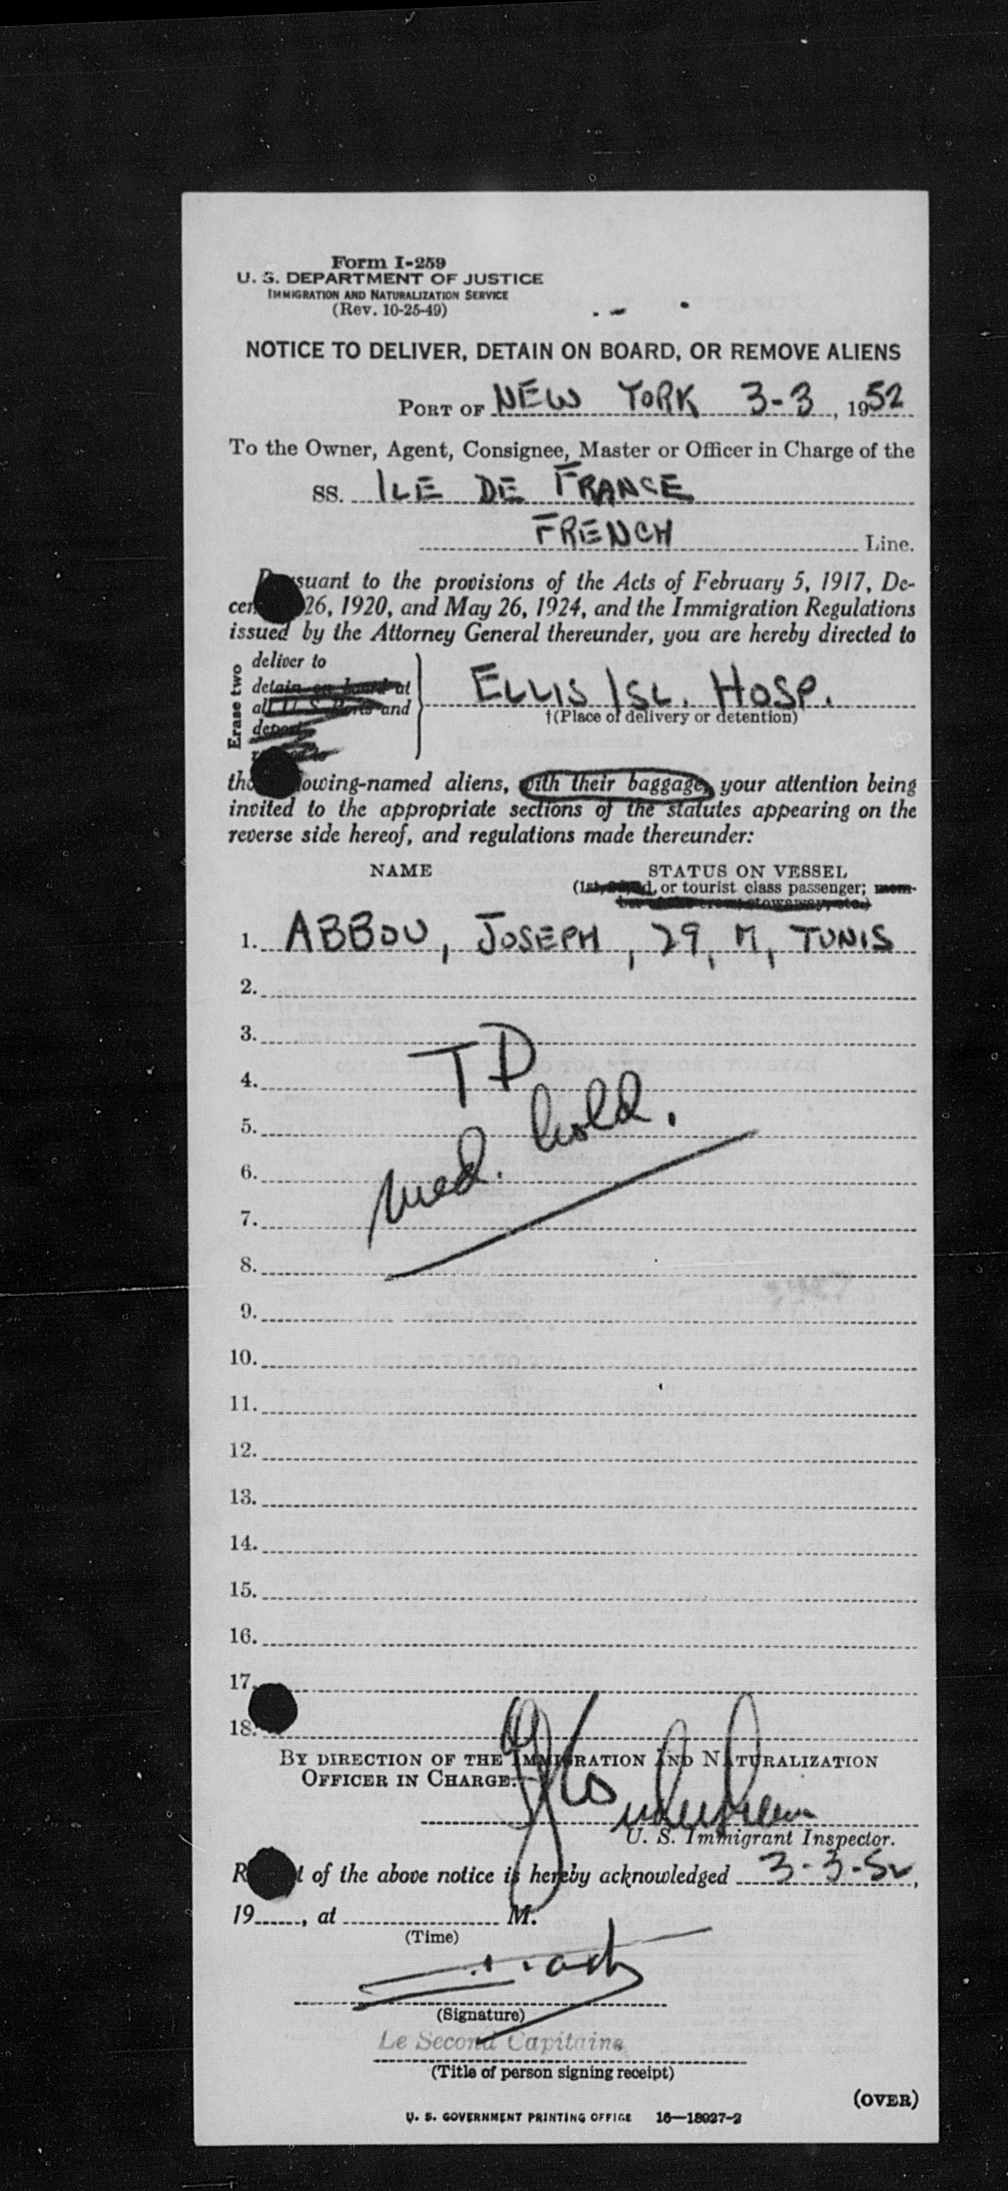 Form I-259
U. S. DEPARTMENT OF JUSTICE
IMMIGRATION AND NATURALIZATION SERVICE
(Rev. 10-25-49)
NOTICE TO DELIVER, DETAIN ON BOARD, OR REMOVE ALIENS
PORT OF NEW YORK 3-3, 1952
To the Owner, Agent, Consignee, Master or Officer in Charge of the
SS. ILE DE FRANCE
FRENCH Line.
to the provisions of the Acts of February 5, 1917, De-
26, 1920, and May 26, 1924, and the Immigration Regulations
issued by the Attorney General thereunder, you are hereby directed to
Erase two
deliver to
detain on board at
all U. S. Ports and
deport
ELLIS ISL. HOSP.
†(Place of delivery or detention)
aliens, with their baggage, your attention being
invited to the appropriate sections of the statutes appearing on the
reverse side hereof, and regulations made thereunder:
NAME STATUS ON VESSEL
(1st, or tourist class passenger; mem-
stowaway, etc.)
1. ABBOU, JOSEPH, 29, M, TUNIS
2.
3.
TD
4.
5.
med. hold.
6.
7.
8.
9.
10.
11.
12.
13.
14.
15.
16.
17.
18.
BY DIRECTION OF THE IMMIGRATION AND NATURALIZATION
OFFICER IN CHARGE:
U. S. Immigrant Inspector.
of the above notice is hereby acknowledged 3-3-52,
19......, at M.
(Time)
(Signature)
Le Second Capitaine
(Title of person signing receipt)
(OVER)
U. S. GOVERNMENT PRINTING OFFICE 16—18027-2